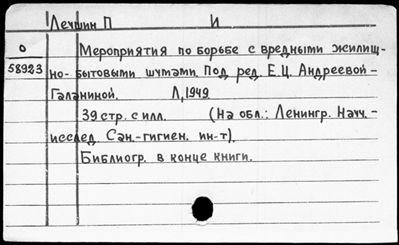 Лечшин П И
О Мероприятия по борьбе с вредными жилищ-
58923 но-бытовыми шумами. Под ред. Е.Ц. Андреевой-
Галаниной. Л,1949
39 стр. с илл. (На обл.: Ленингр. Науч.-
исслед. Сан.-гигиен. ин-т).
Библиогр. в конце книги.